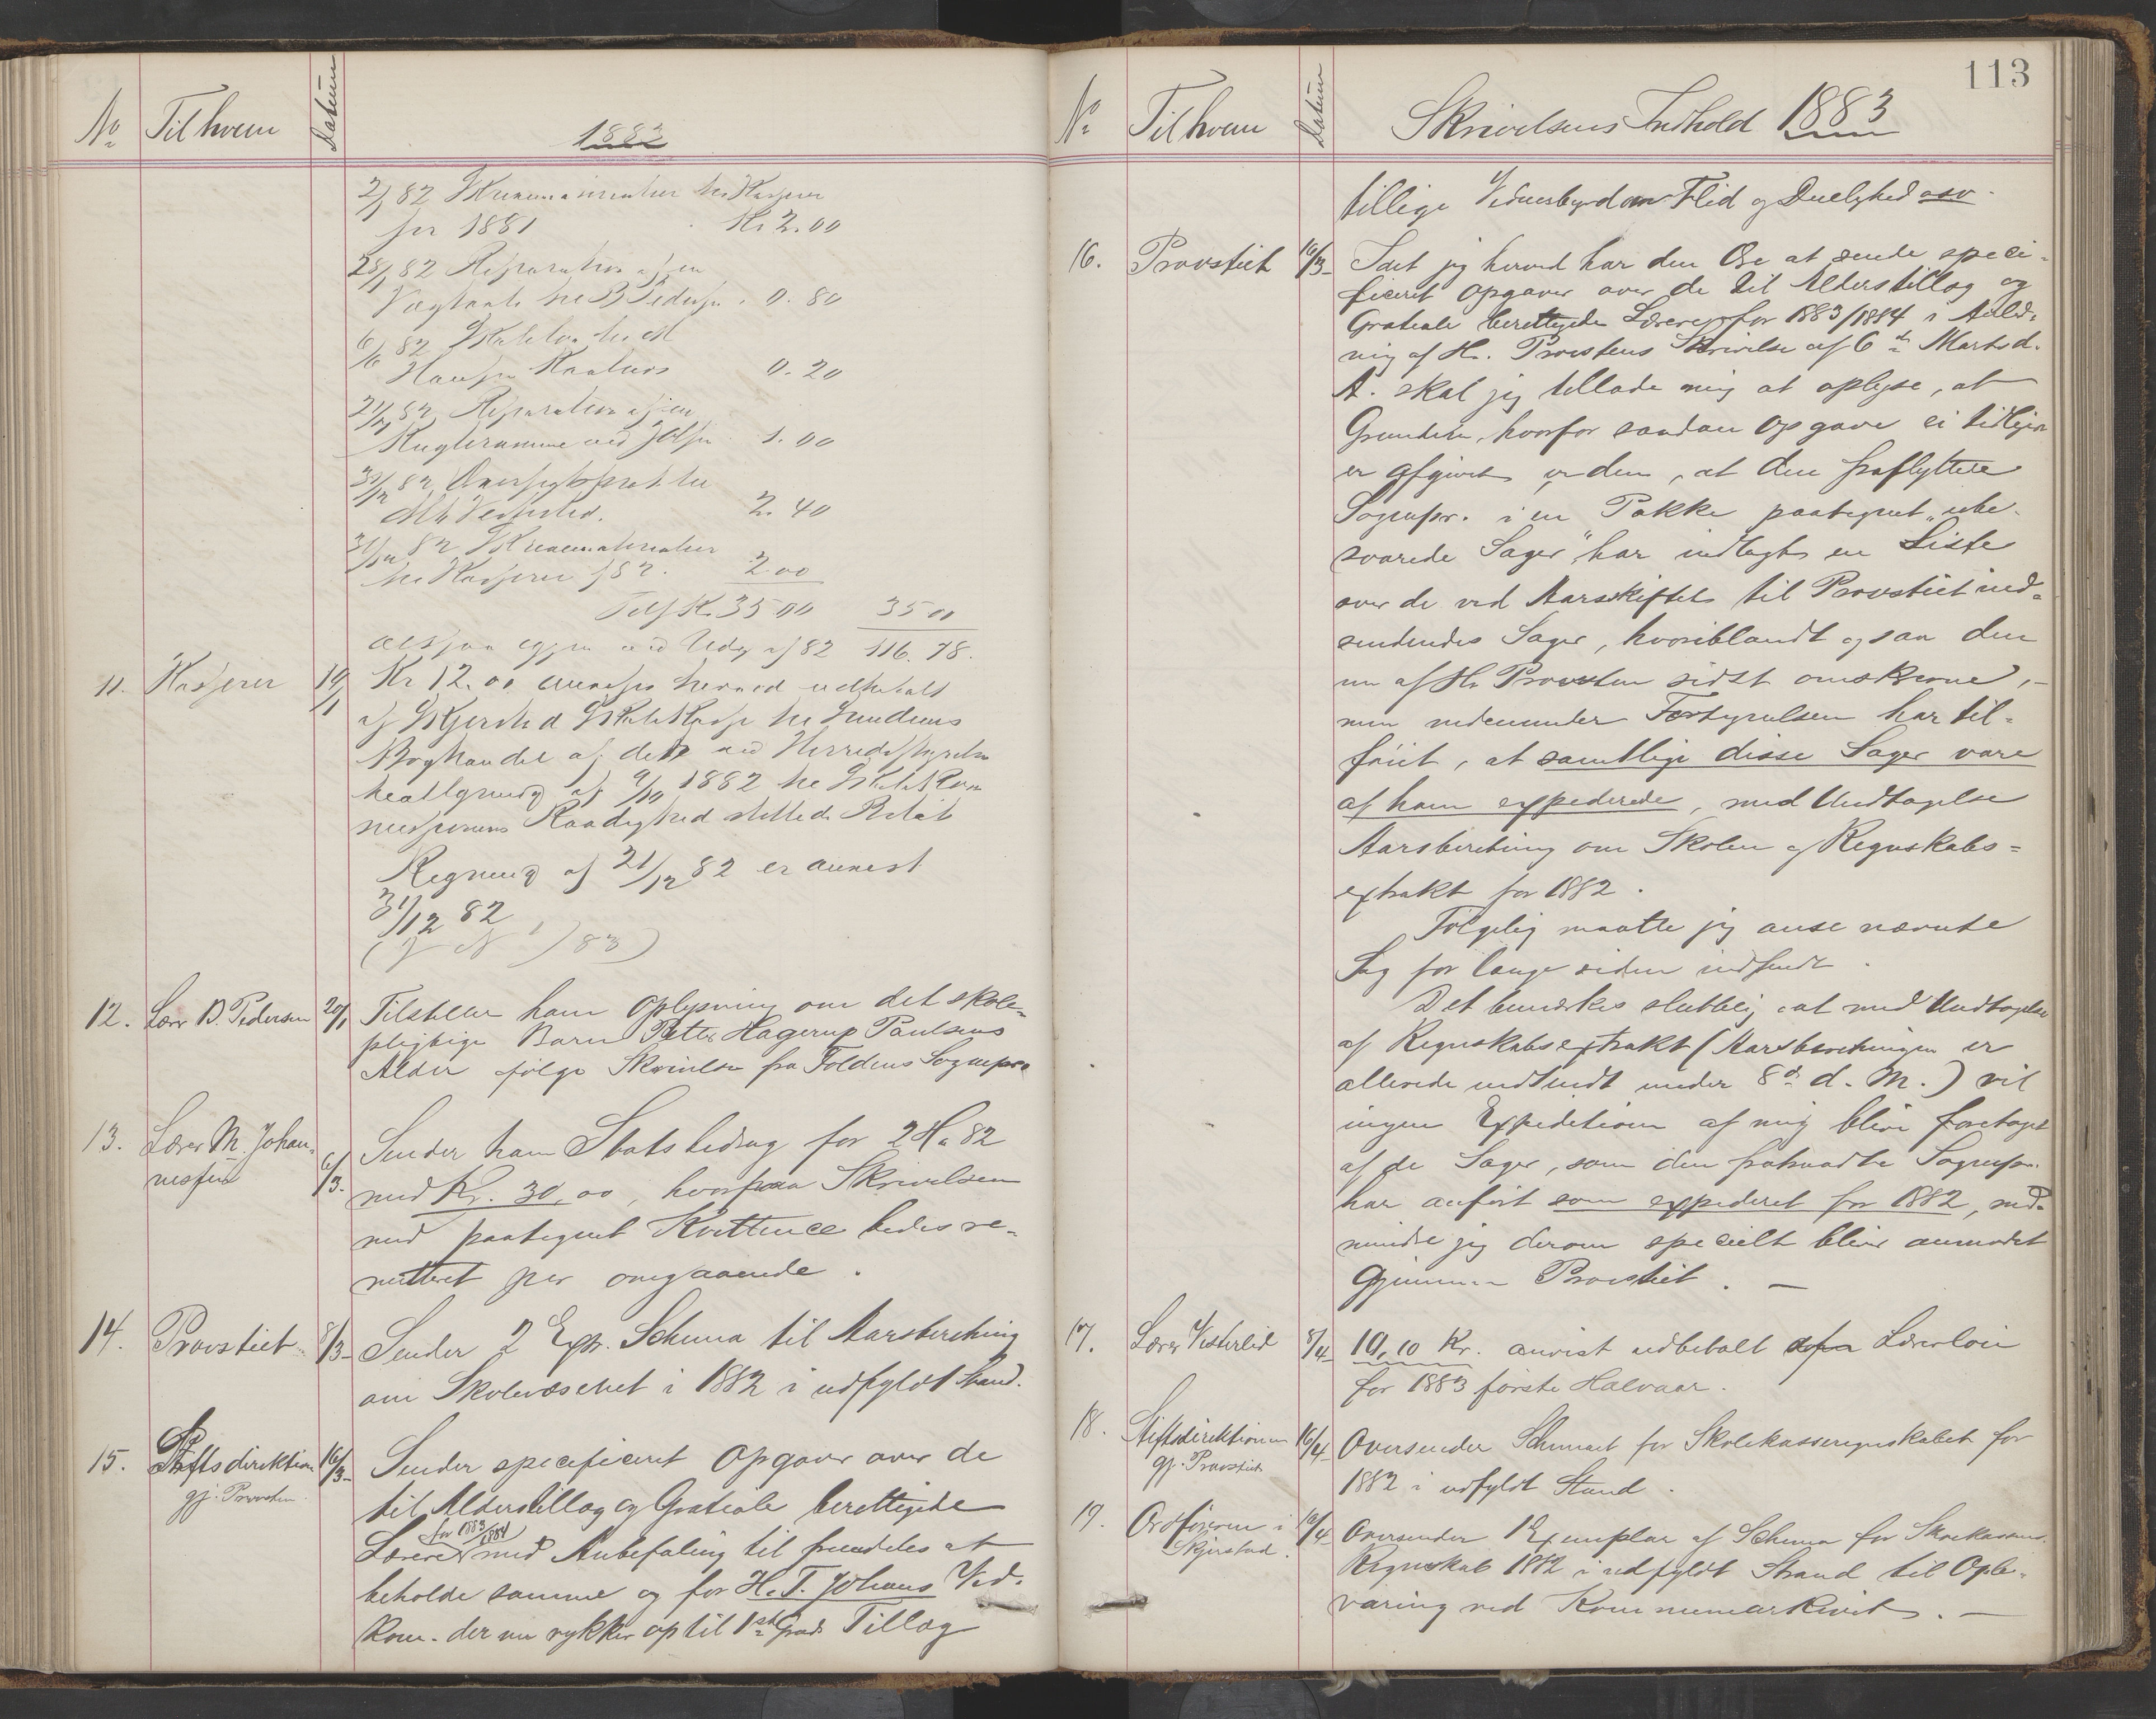 No Til hvem Datum 1883
2/1 82 Skrivematerialier til Kasserer
for 1881 Kr 2.00
28/1 82 Reparation af en
Vægtavle til B Pedersen 0.80
6/6 82 til
Hansen 0.20
21/12 82 Reparation af en
Kugleramme ved 1.00
31/12 82
Vesterlid. 2.40
31/12 82 Skrivematerialier
til Kasserer f 82. 2 00
Tils Kr. 35 00 35 00
altsaa igjen ved Udg af 82 116.78.
11. Kasserer 19/1 Kr 12.00 anvises herved udbetalt
af Skjerstad Skolekasse til
Boghandel af det ved Herredsstyrelsens
beslutning af 9/10 1882 til Skolekom
missionens Raadighed stillede Beløb
Regning af 21/12 82 er anvist
31/12 82
(J N 1/83)
12. Lærer B. Pedersen 20/1 Tilstiller ham Oplysning om det skole-
pligtige Barn Petter Hagerup Paulsens
Alder følge Skrivelse fra Foldens Sognepr.
13. Lærer M. Johan-
nessen 6/3. Sender ham Statsbidrag for 2 H. 82
med Kr. 30,00, hvorpaa Skrivelsen
med paategnet Kvittence bedes re-
mitteret per omgaaende.
14. Provstiet 8/3 Sender 2 Expr. Schema til Aarsberetning
om Skolevæsenet i 1882 i udfyldt Stand.
15. Stiftsdirektion
gj. Provsten 16/3 Sender specificeret Opgave over de
til Alderstillæg og Gratiale berettigede
for 1883/1884
Lærere med Anbefaling til fremdeles at
beholde samme og for H. T. Johans. Ved-
kom. der nu rykker op til 1ste Grads Tillæg
113
No Til hvem Datum Skrivelsens Indhold 1883
tillige Vidnesbyrd om Flid og Duelighed osv.
16. Provstiet 16/3 Idet jeg herved har den Ære at sende speci-
ficeret Opgave over de til Alderstillæg og
Gratiale berettigede Lærere for 1883/1884 i Anled-
ning af Hr. Provstens Skrivelse af 6te Marts d.
A. skal jeg tillade mig at oplyse, at
Grunden, hvorfor saadan Opgave ei tidligere
er afgivet er den, at den fraflyttede
Sognepr. i en Pakke paategnet "ube-
svarede Sager" har indlagt en Liste
over de ved Aarsskiftet til Provstiet ind-
sendendes Sager, hvoriblandt ogsaa den
nu af Hr. Provsten sidst omskrevne, -
men nedenunder Fortegnelsen har til-
føiet, at samtlige disse Sager vare
af ham expederede, med Undtagelse
Aarsberetning om Skolen og Regnskabs-
extrakt for 1882.
Følgelig maatte jeg anse nævnte
Sag for længe siden indsendt.
Det bemærkes sluttelig, at med Undtagelse
af Regnskabsextrakt (Aarsberetningen er
allerede indsendt under 8de d. M.) vil
ingen Expedition af mig blive foretaget
af de Sager, som den fratraadte Sognepr.
har anført som expederet for 1882, med-
mindre jeg derom specielt bliver anmodet
gjennem Provstiet. -
17. Lærer Vesterlid 8/4 10,10 Kr. anvist udbetalt Lærerløn
for 1883 første Halvaar.
18. Stiftsdirektionen
gj. Provstiet 16/4 Oversender Schemaet for Skolekasseregnskabet for
1882 i udfyldt Stand.
19. Ordføreren i
Skjerstad. 16/4 Oversender 1 Exemplar af Schema for Skolekassens
Regnskab 1882 i udfyldt Stand til Opbe-
varing ved Kommunearkivet. -